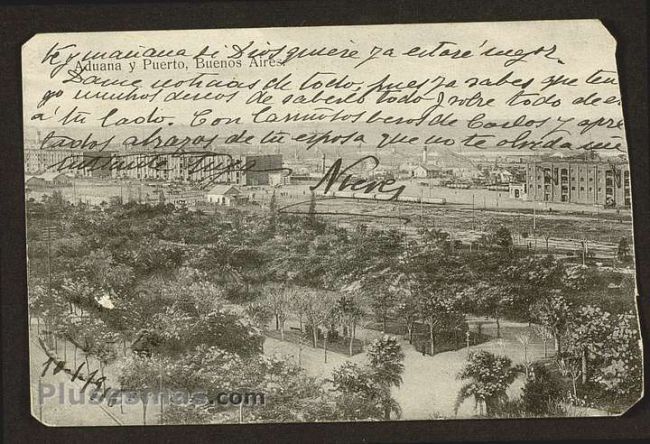 te y mañana si Dios quiere ya estaré mejor.
Aduana y Puerto, Buenos Aires
Dame noticias de todo, pues ya sabes que ten
go muchos deseos de saberlo todo y sobre todo de es
á tu lado. Con Carnitos besos de Carlos y apre
tados abrazos de tu esposa que no te olvida un
instante tuya
Nieves
10-1-
Plusesmas.com